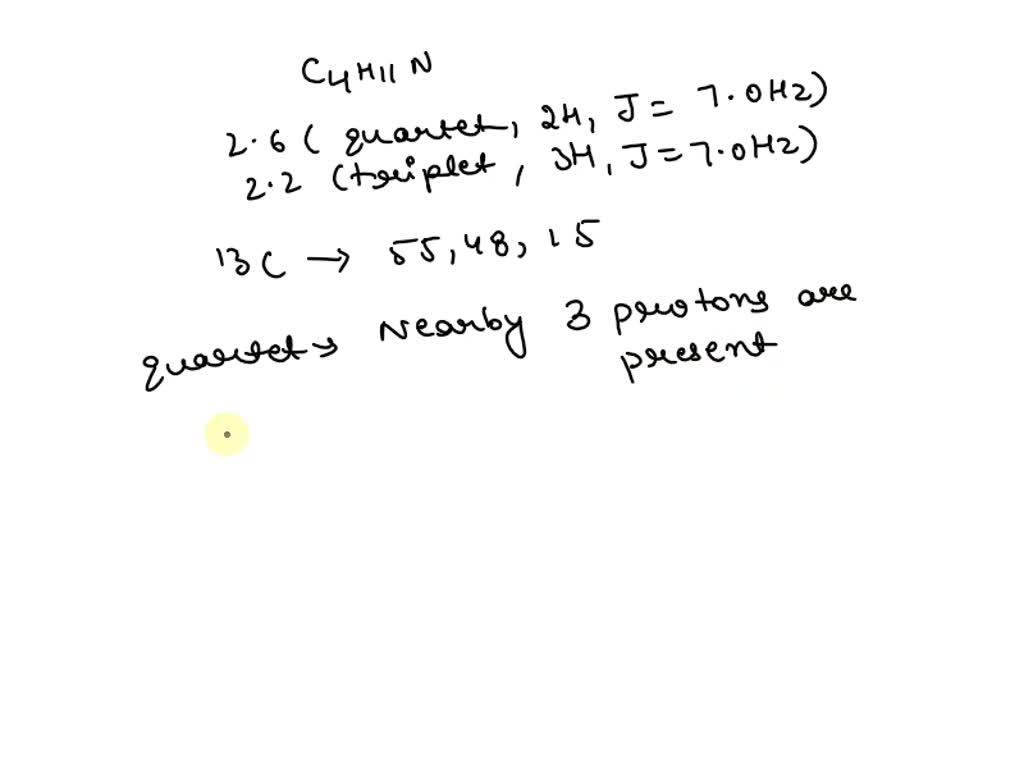 C4H11N
2.6 (quartet, 2H, J = 7.0Hz)
2.2 (triplet, 3H, J = 7.0Hz)
13C → 55, 48, 15
quartet → Nearby 3 protons are
present